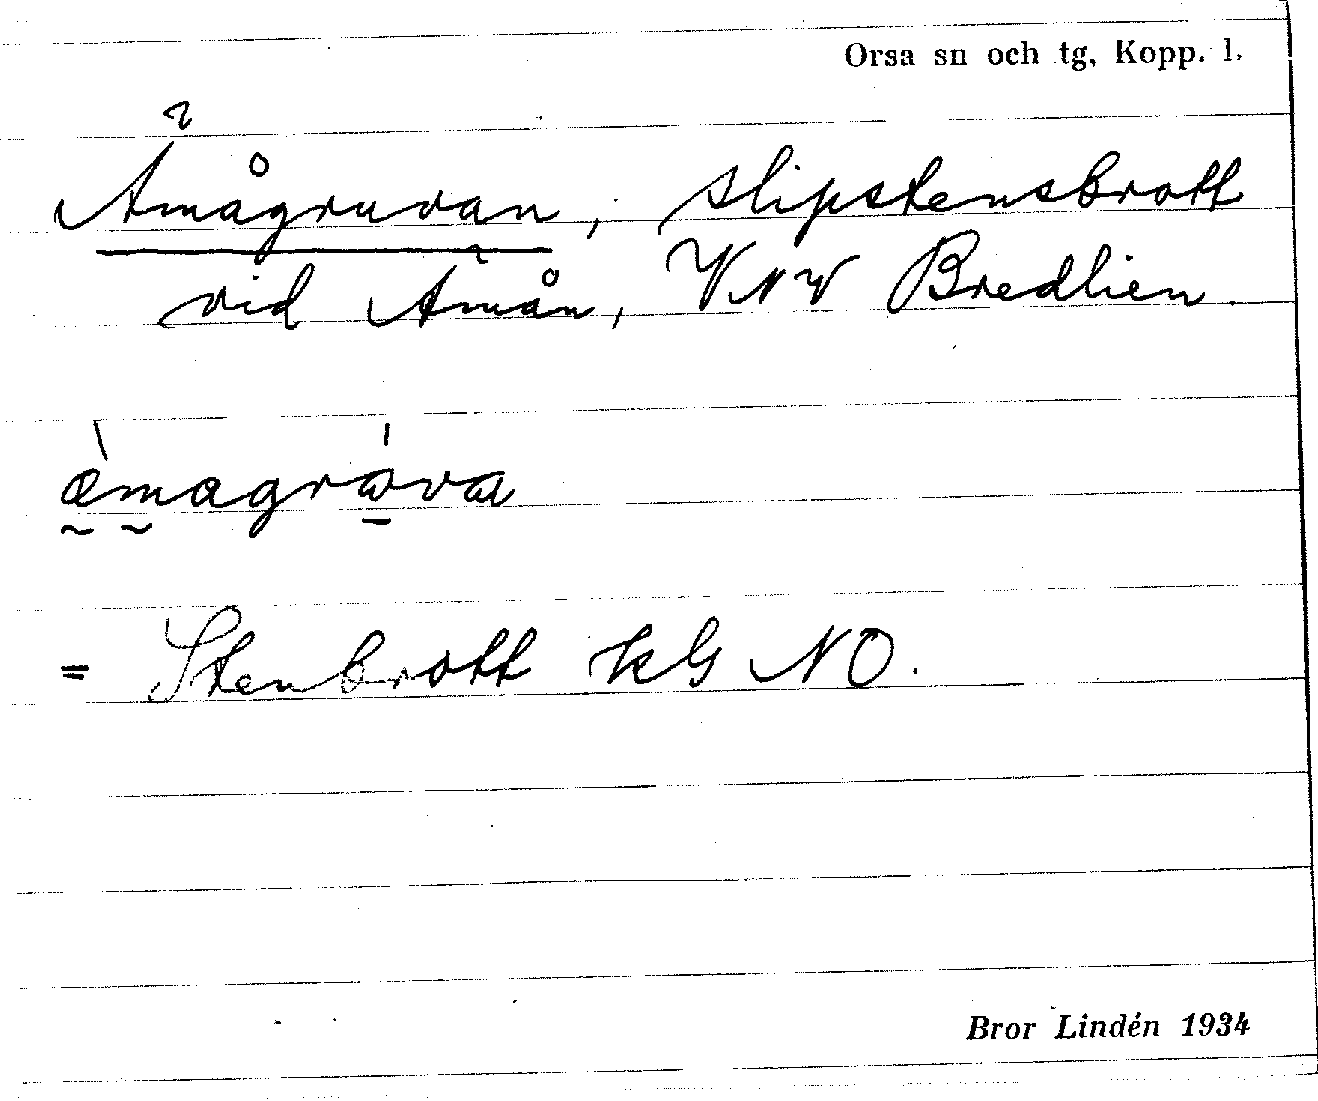 Orsa sn och tg, Kopp. l.
Åmågruvan, slipstensbrott
vid Åmån, VNV Bredlien.
ämagrava
= Stenbrott kG NO.
Bror Lindén 1934